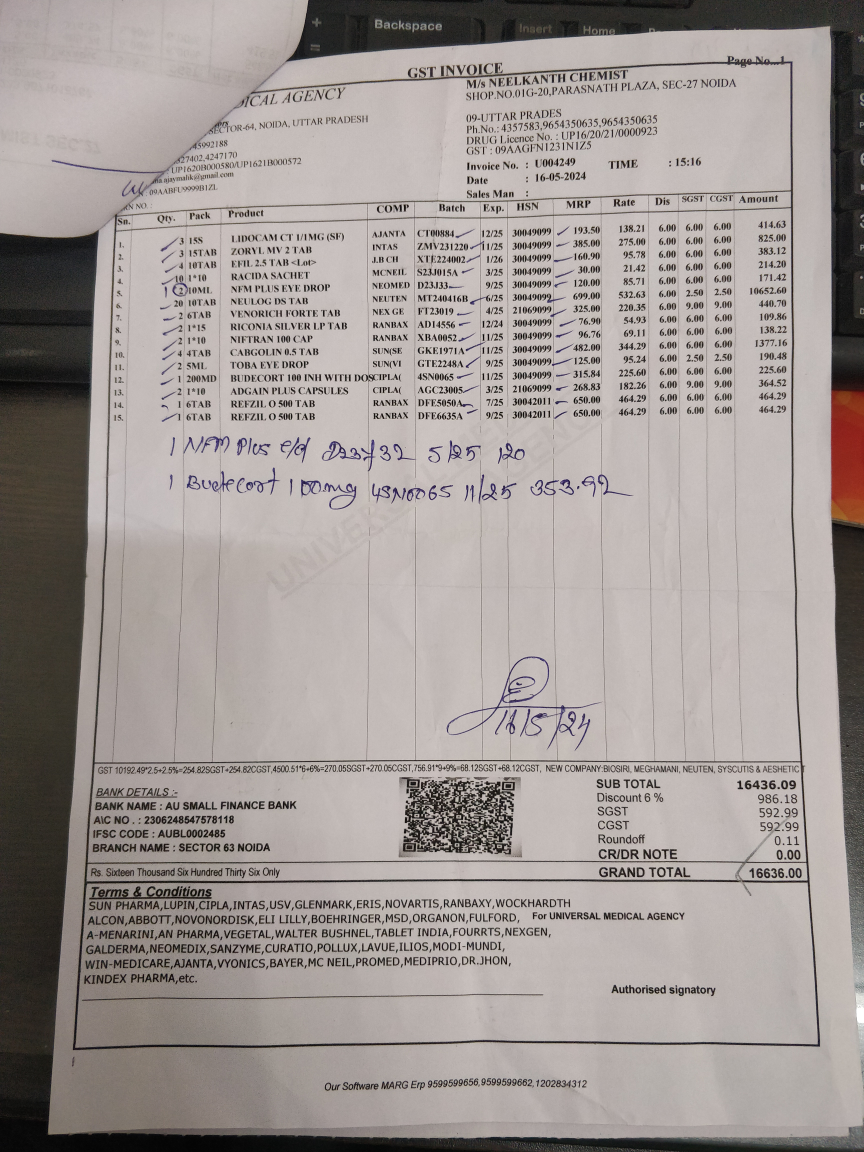 Backspace
Insert
Home
Page No...1
GST INVOICE
M/s NEELKANTH CHEMIST
SHOP.NO.01G-20,PARASNATH PLAZA, SEC-27 NOIDA
DICAL AGENCY
SECTOR-64, NOIDA, UTTAR PRADESH
09-UTTAR PRADES
Ph.No.: 4357583,9654350635,9654350635
DRUG Licence No. : UP16/20/21/0000923
GST : 09AAGFN1231N1Z5
45992188
427402,4247170
UP1620B000580/UP1621B000572
ma.ajaymalik@gmail.com
09AABFU9999B1ZL
Invoice No. : U004249 TIME : 15:16
Date : 16-05-2024
Sales Man :
Sn. Qty. Pack Product COMP Batch Exp. HSN MRP Rate Dis SGST CGST Amount
1. 3 15S LIDOCAM CT 1/1MG (SF) AJANTA CT00884 12/25 30049099 193.50 138.21 6.00 6.00 6.00 414.63
2. 3 15TAB ZORYL MV 2 TAB INTAS ZMV231220 11/25 30049099 385.00 275.00 6.00 6.00 6.00 825.00
3. 4 10TAB EFIL 2.5 TAB <Lot> J.B CH XTE224002 1/26 30049099 160.90 95.78 6.00 6.00 6.00 383.12
4. 10 1*10 RACIDA SACHET MCNEIL S23J015A 3/25 30049099 30.00 21.42 6.00 6.00 6.00 214.20
5. 1 2 10ML NFM PLUS EYE DROP NEOMED D23J33 9/25 30049099 120.00 85.71 6.00 6.00 6.00 171.42
6. 20 10TAB NEULOG DS TAB NEUTEN MT240416B 6/25 30049099 699.00 532.63 6.00 2.50 2.50 10652.60
7. 2 6TAB VENORICH FORTE TAB NEX GE FT23019 4/25 21069099 325.00 220.35 6.00 9.00 9.00 440.70
8. 2 1*15 RICONIA SILVER LP TAB RANBAX AD14556 12/24 30049099 76.90 54.93 6.00 6.00 6.00 109.86
9. 2 1*10 NIFTRAN 100 CAP RANBAX XBA0052 11/25 30049099 96.76 69.11 6.00 6.00 6.00 138.22
10. 4 4TAB CABGOLIN 0.5 TAB SUN(SE GKE1971A 11/25 30049099 482.00 344.29 6.00 6.00 6.00 1377.16
11. 2 5ML TOBA EYE DROP SUN(VI GTE2248A 9/25 30049099 125.00 95.24 6.00 2.50 2.50 190.48
12. 1 200MD BUDECORT 100 INH WITH DOS CIPLA( 4SN0065 11/25 30049099 315.84 225.60 6.00 6.00 6.00 225.60
13. 2 1*10 ADGAIN PLUS CAPSULES CIPLA( AGC23005 3/25 21069099 268.83 182.26 6.00 9.00 9.00 364.52
14. 1 6TAB REFZIL O 500 TAB RANBAX DFE5050A 7/25 30042011 650.00 464.29 6.00 6.00 6.00 464.29
15. 1 6TAB REFZIL O 500 TAB RANBAX DFE6635A 9/25 30042011 650.00 464.29 6.00 6.00 6.00 464.29
1 NFM Plus e/d 5/25 120
1 Budecort 100mg 4SN0065 11/25 353.92
16/5/24
GST 10192.49*2.5+2.5%=254.82SGST+254.82CGST,4500.51*6+6%=270.05SGST+270.05CGST,756.91*9+9%=68.12SGST+68.12CGST, NEW COMPANY:BIOSIRI, MEGHAMANI, NEUTEN, SYSCUTIS & AESHETIC
BANK DETAILS :-
BANK NAME : AU SMALL FINANCE BANK
A\C NO . : 2306248547578118
IFSC CODE : AUBL0002485
BRANCH NAME : SECTOR 63 NOIDA
SUB TOTAL 16436.09
Discount 6 % 986.18
SGST 592.99
CGST 592.99
Roundoff 0.11
CR/DR NOTE 0.00
Rs. Sixteen Thousand Six Hundred Thirty Six Only
GRAND TOTAL 16636.00
Terms & Conditions
SUN PHARMA,LUPIN,CIPLA,INTAS,USV,GLENMARK,ERIS,NOVARTIS,RANBAXY,WOCKHARDTH
ALCON,ABBOTT,NOVONORDISK,ELI LILLY,BOEHRINGER,MSD,ORGANON,FULFORD,
For UNIVERSAL MEDICAL AGENCY
A-MENARINI,AN PHARMA,VEGETAL,WALTER BUSHNEL,TABLET INDIA,FOURRTS,NEXGEN,
GALDERMA,NEOMEDIX,SANZYME,CURATIO,POLLUX,LAVUE,ILIOS,MODI-MUNDI,
WIN-MEDICARE,AJANTA,VYONICS,BAYER,MC NEIL,PROMED,MEDIPRIO,DR.JHON,
KINDEX PHARMA,etc.
Authorised signatory
Our Software MARG Erp 9599599656,9599599662,1202834312